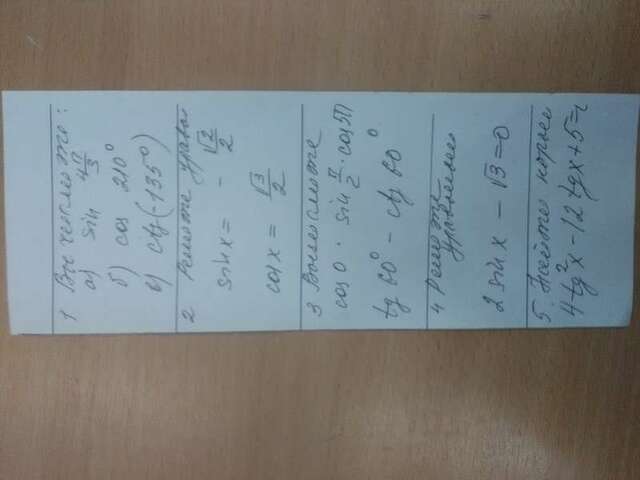 1 Вычислите:
а) sin 4π/3
б) cos 210°
в) ctg(-135°)
2 Решите уравн
sin x = - √2/2
cos x = √3/2
3 Вычислите
cos 0 · sin π/2 · cos 5π
tg 60° - ctg 60°
4 Решите
уравнение
2 sin x - √3 = 0
5. Найдите корни
4 tg² x - 12 tg x + 5 =